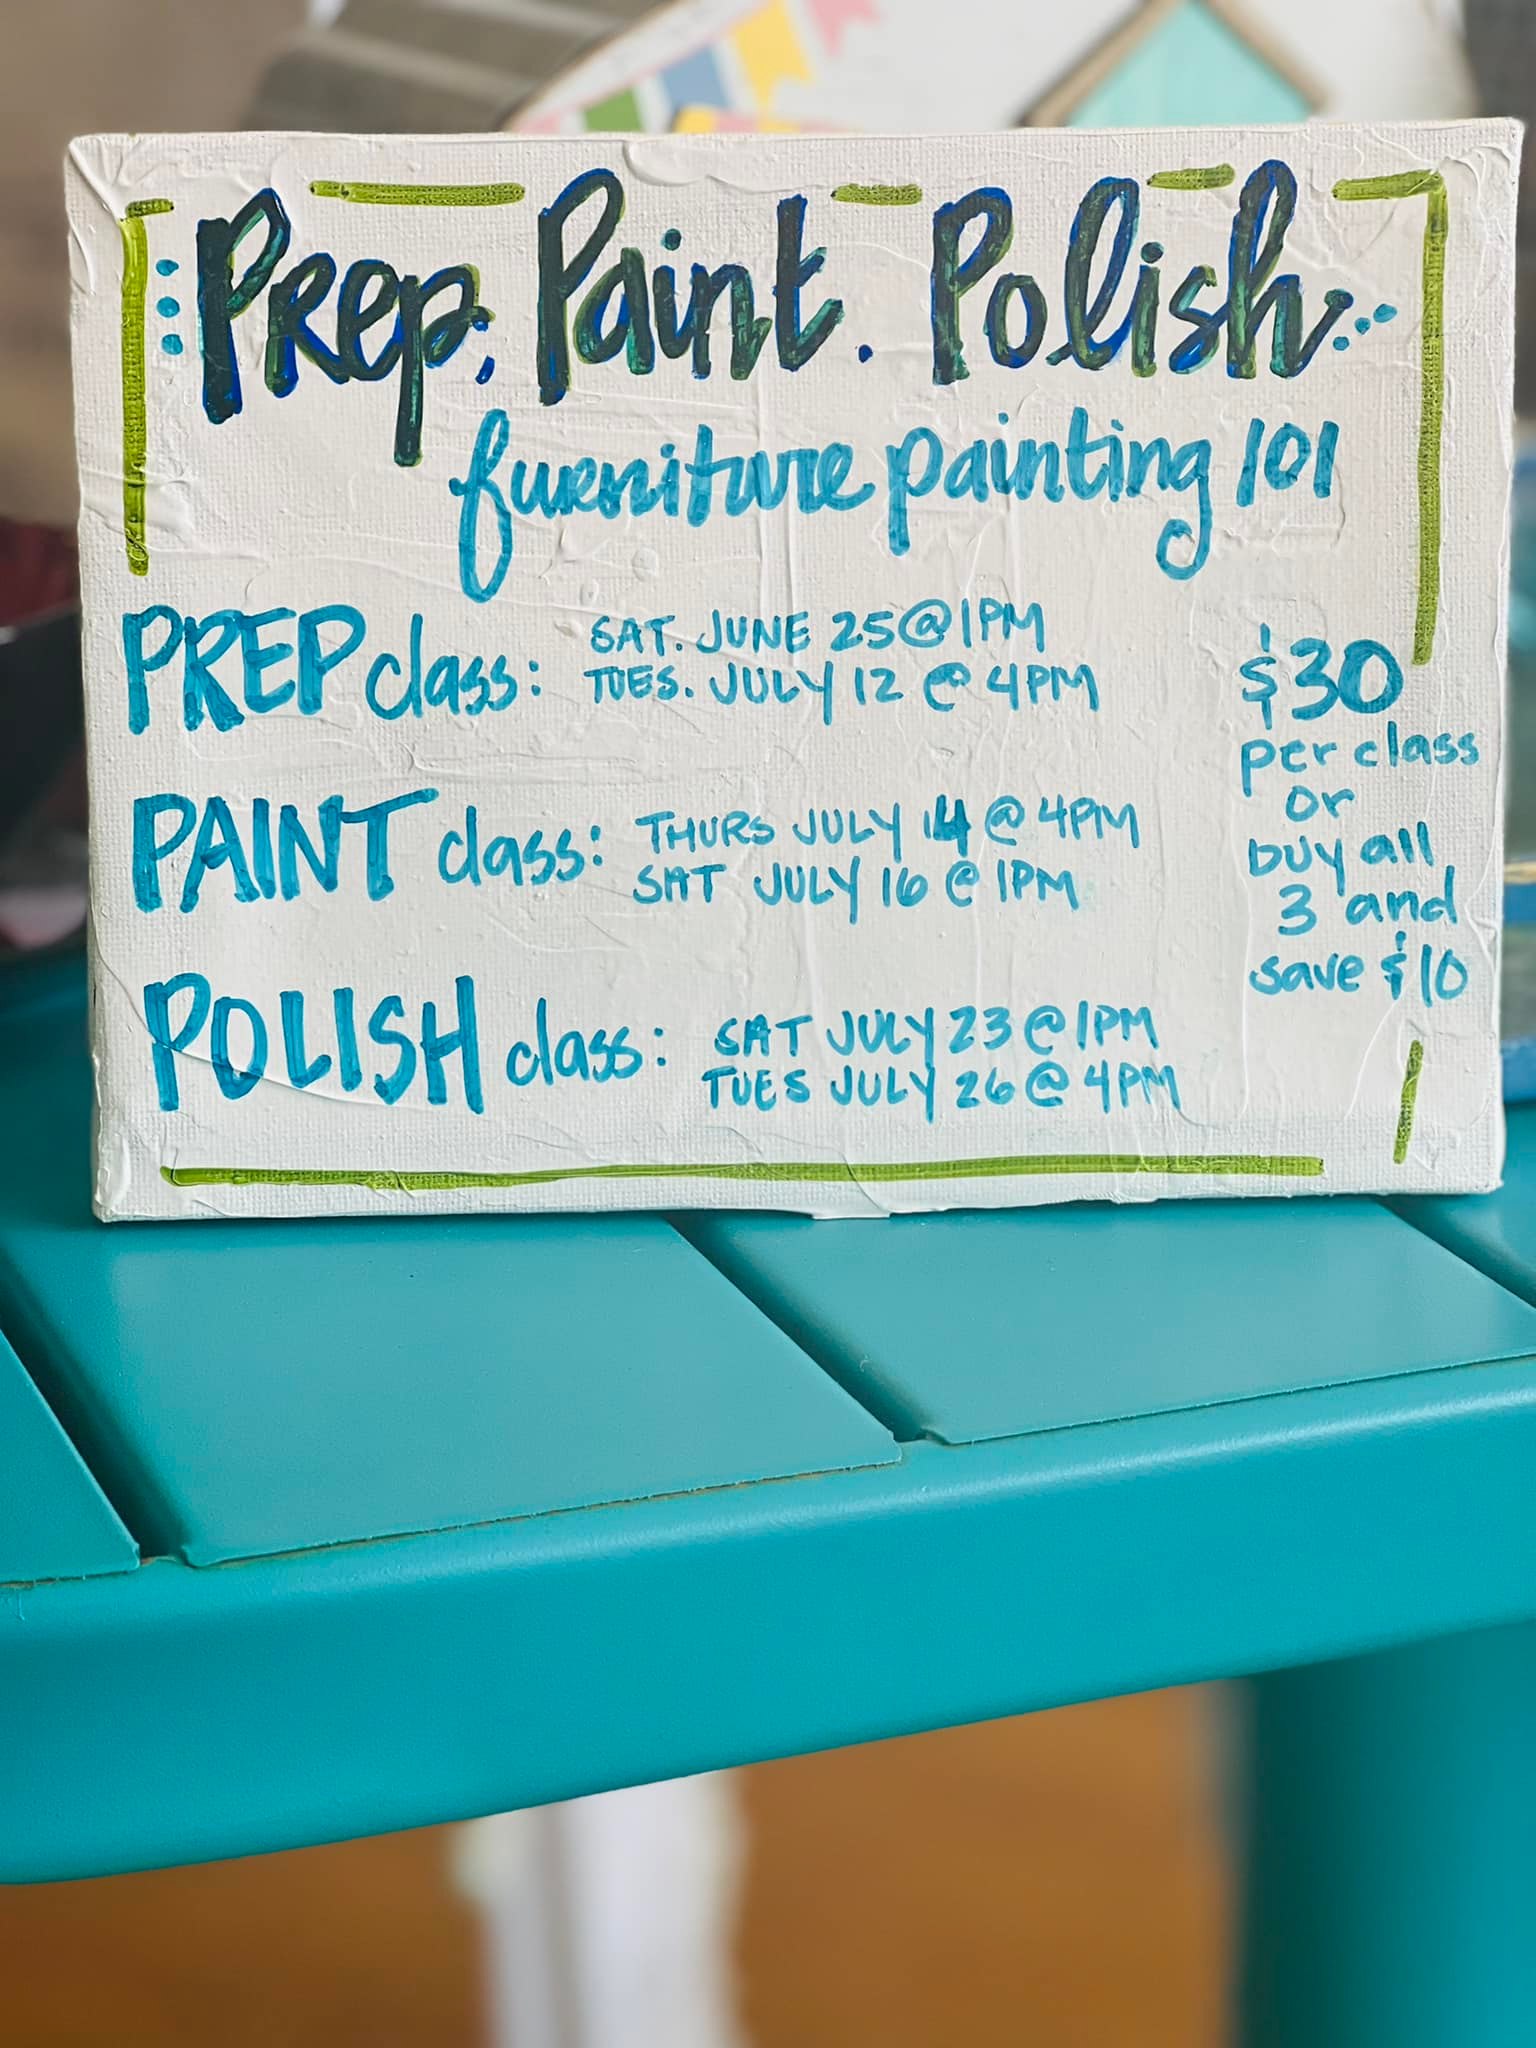 Prep. Paint. Polish
furniture painting 101
PREP class: SAT. JUNE 25 @ 1PM
TUES. JULY 12 @ 4PM
PAINT class: THURS JULY 14 @ 4PM
SAT JULY 16 @ 1PM
POLISH class: SAT JULY 23 @ 1PM
TUES JULY 26 @ 4PM
$30
per class
or
buy all
3 and
save $10